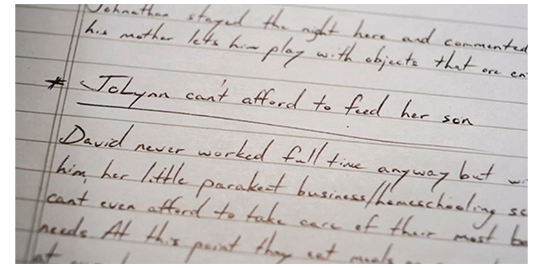 Johnathan stayed the night here and commented
his mother lets him play with objects that are en
* JoLynn can't afford to feed her son
David never worked full time anyway but w
him, her little parakeet business/homeschooling sc
cant even afford to take care of their most ba
needs At this point they eat meals
at